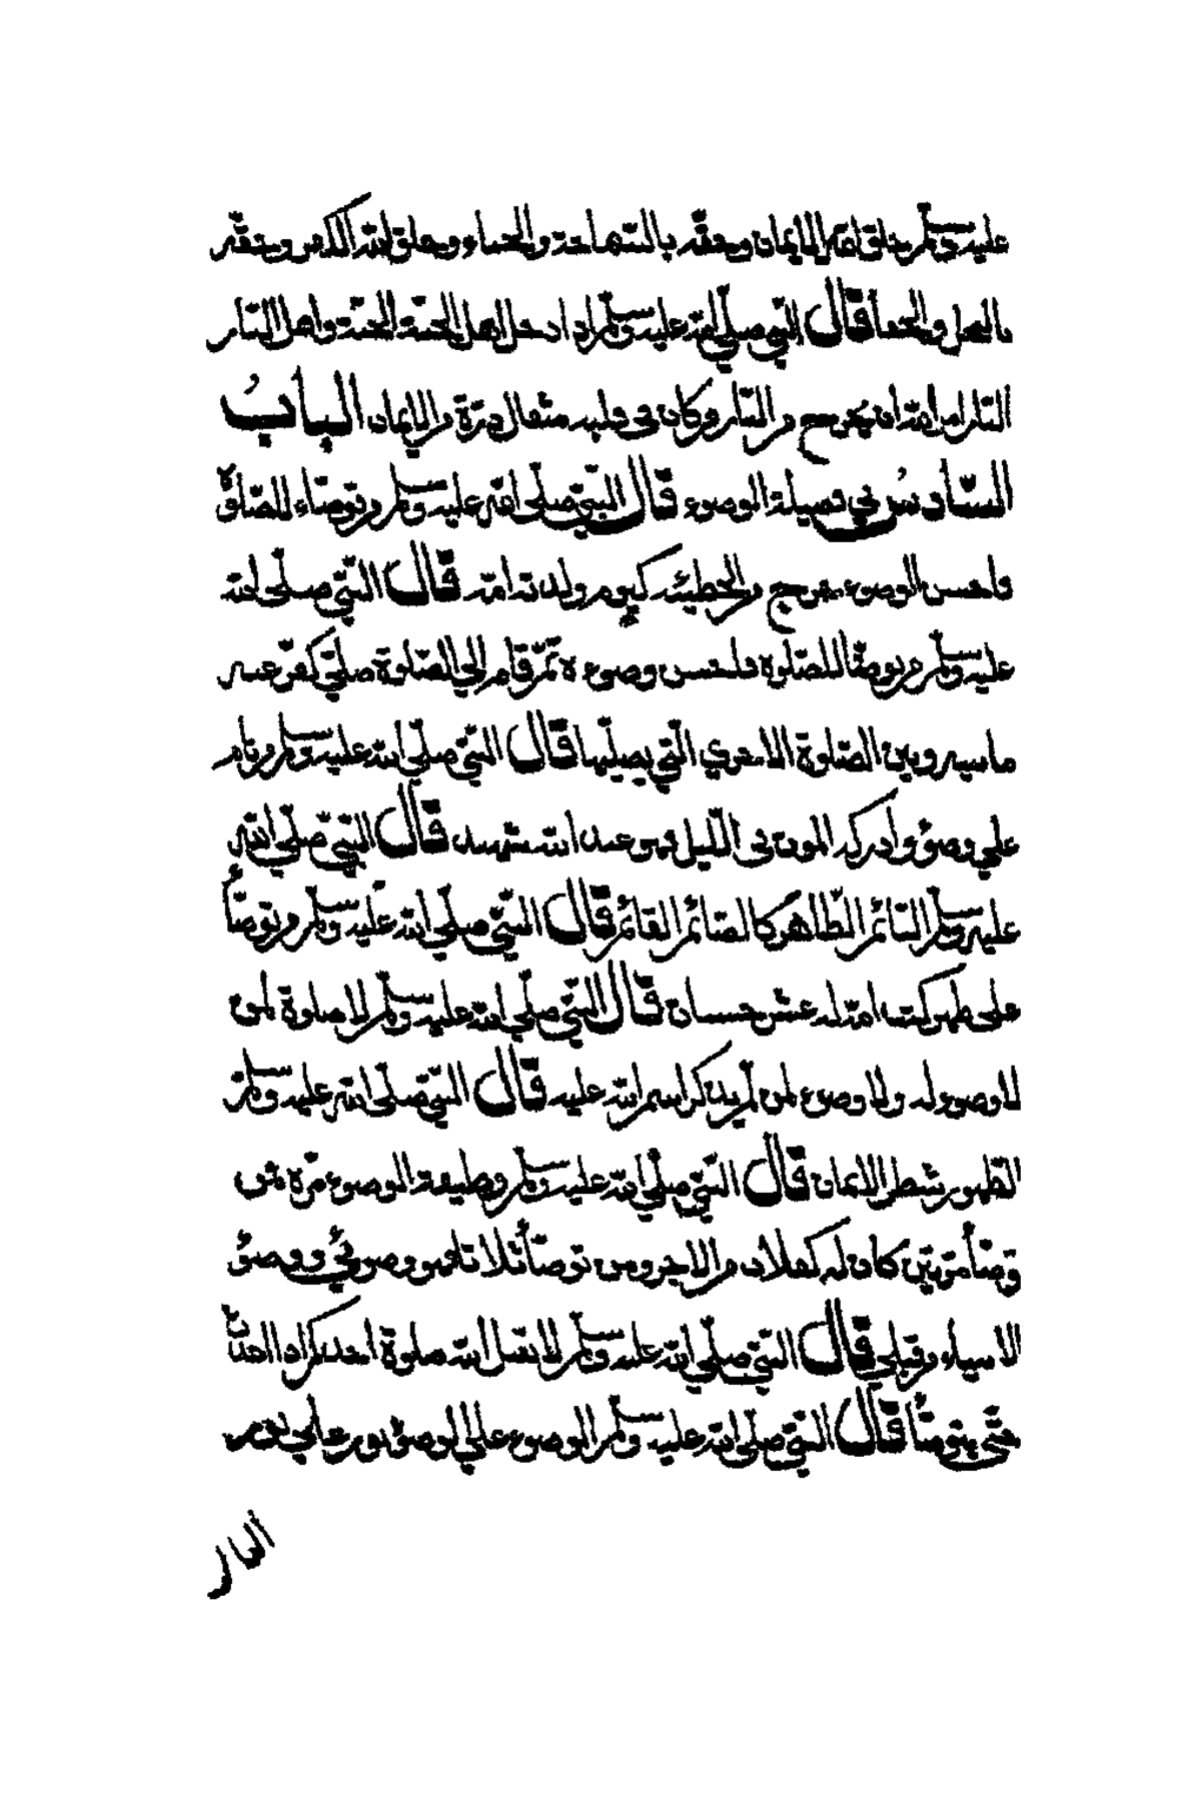 عليه وسلم خلق الله الايمان وحفه بالسماحة والحياء وخلق الله الكفر وحفه
بالبخل والجفا قال النبي صلى الله عليه وسلم اذا دخل اهل الجنة الجنة واهل النار
النار امر الله ان يخرج من النار من كان في قلبه مثقال ذرة من الايمان الباب
السادس في فضيلة الوضوء قال النبي صلى الله عليه وسلم من توضاء للصلوة
فاحسن الوضوء خرج من الخطيئه كيوم ولدته امه قال النبي صلى الله
عليه وسلم من توضا للصلوة فاحسن وضوءه ثم قام الي الصلوة صلى كفر عنه
ما بينه وبين الصلوة الاخري التي يصليها قال النبي صلي الله عليه وسلم من نام
علي وضوء وادركه الموت في الليل فهو عند الله شهيد قال النبي صلى الله
عليه وسلم النائم الطاهر كالصائم القائم قال النبي صلي الله عليه وسلم من توضأ
على طهر كتب الله له عشر حسنات قال النبي صلي الله عليه وسلم لا صلوة لمن
لا وضوء له ولا وضوء لمن لم يذكر اسم الله عليه قال النبي صلى الله عليه وسلم
الطهور شطر الايمان قال النبي صلي الله عليه وسلم وظيفة الوضوء مرة فمن
توضأ مرتين كان له كفلان من الاجر ومن توضأ ثلاثا فهو وضوئي ووضوء
الانبياء من قبلي قال النبي صلي الله عليه وسلم لا يقبل الله صلوة احدكم اذا احدث
حتي يتوضأ قال النبي صلى الله عليه وسلم الوضوء علي الوضوء نور علي نور